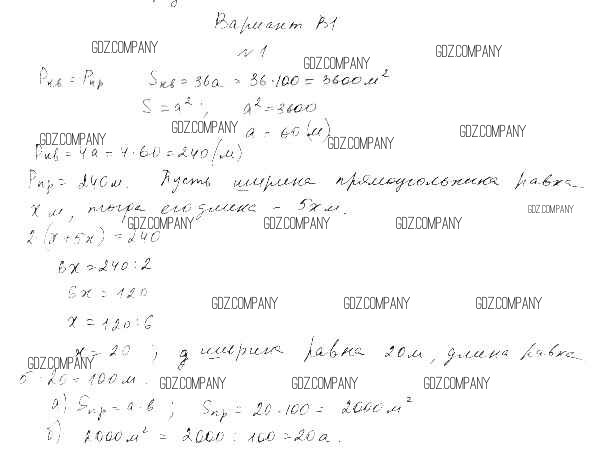 Вариант В1
GDZ.COMPANY GDZ.COMPANY
№1 GDZ.COMPANY
Pкв = Pпр Sкв = 36а = 36·100 = 3600м²
S = a²; a² = 3600
GDZ.COMPANY GDZ.COMPANY a = 60(м) GDZ.COMPANY GDZ.COMPANY
Pкв = 4a = 4·60 = 240(м)
Pпр = 240м. Пусть ширина прямоугольника равна
x м, тогда его длина – 5x м. GDZ.COMPANY
GDZ.COMPANY GDZ.COMPANY GDZ.COMPANY
2·(x+5x) = 240
6x = 240:2
6x = 120
GDZ.COMPANY GDZ.COMPANY GDZ.COMPANY
x = 120:6
x = 20; ширина равна 20м, длина равна
GDZ.COMPANY
5·20 = 100м. GDZ.COMPANY GDZ.COMPANY GDZ.COMPANY
а) Sпр = a·b; Sпр = 20·100 = 2000м²
б) 2000м² = 2000:100 = 20а.